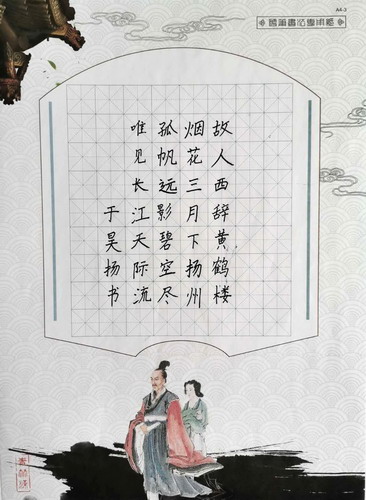 A4-3
硬筆書法專用紙
故人西辞黄鹤楼
烟花三月下扬州
孤帆远影碧空尽
唯见长江天际流
于昊扬书